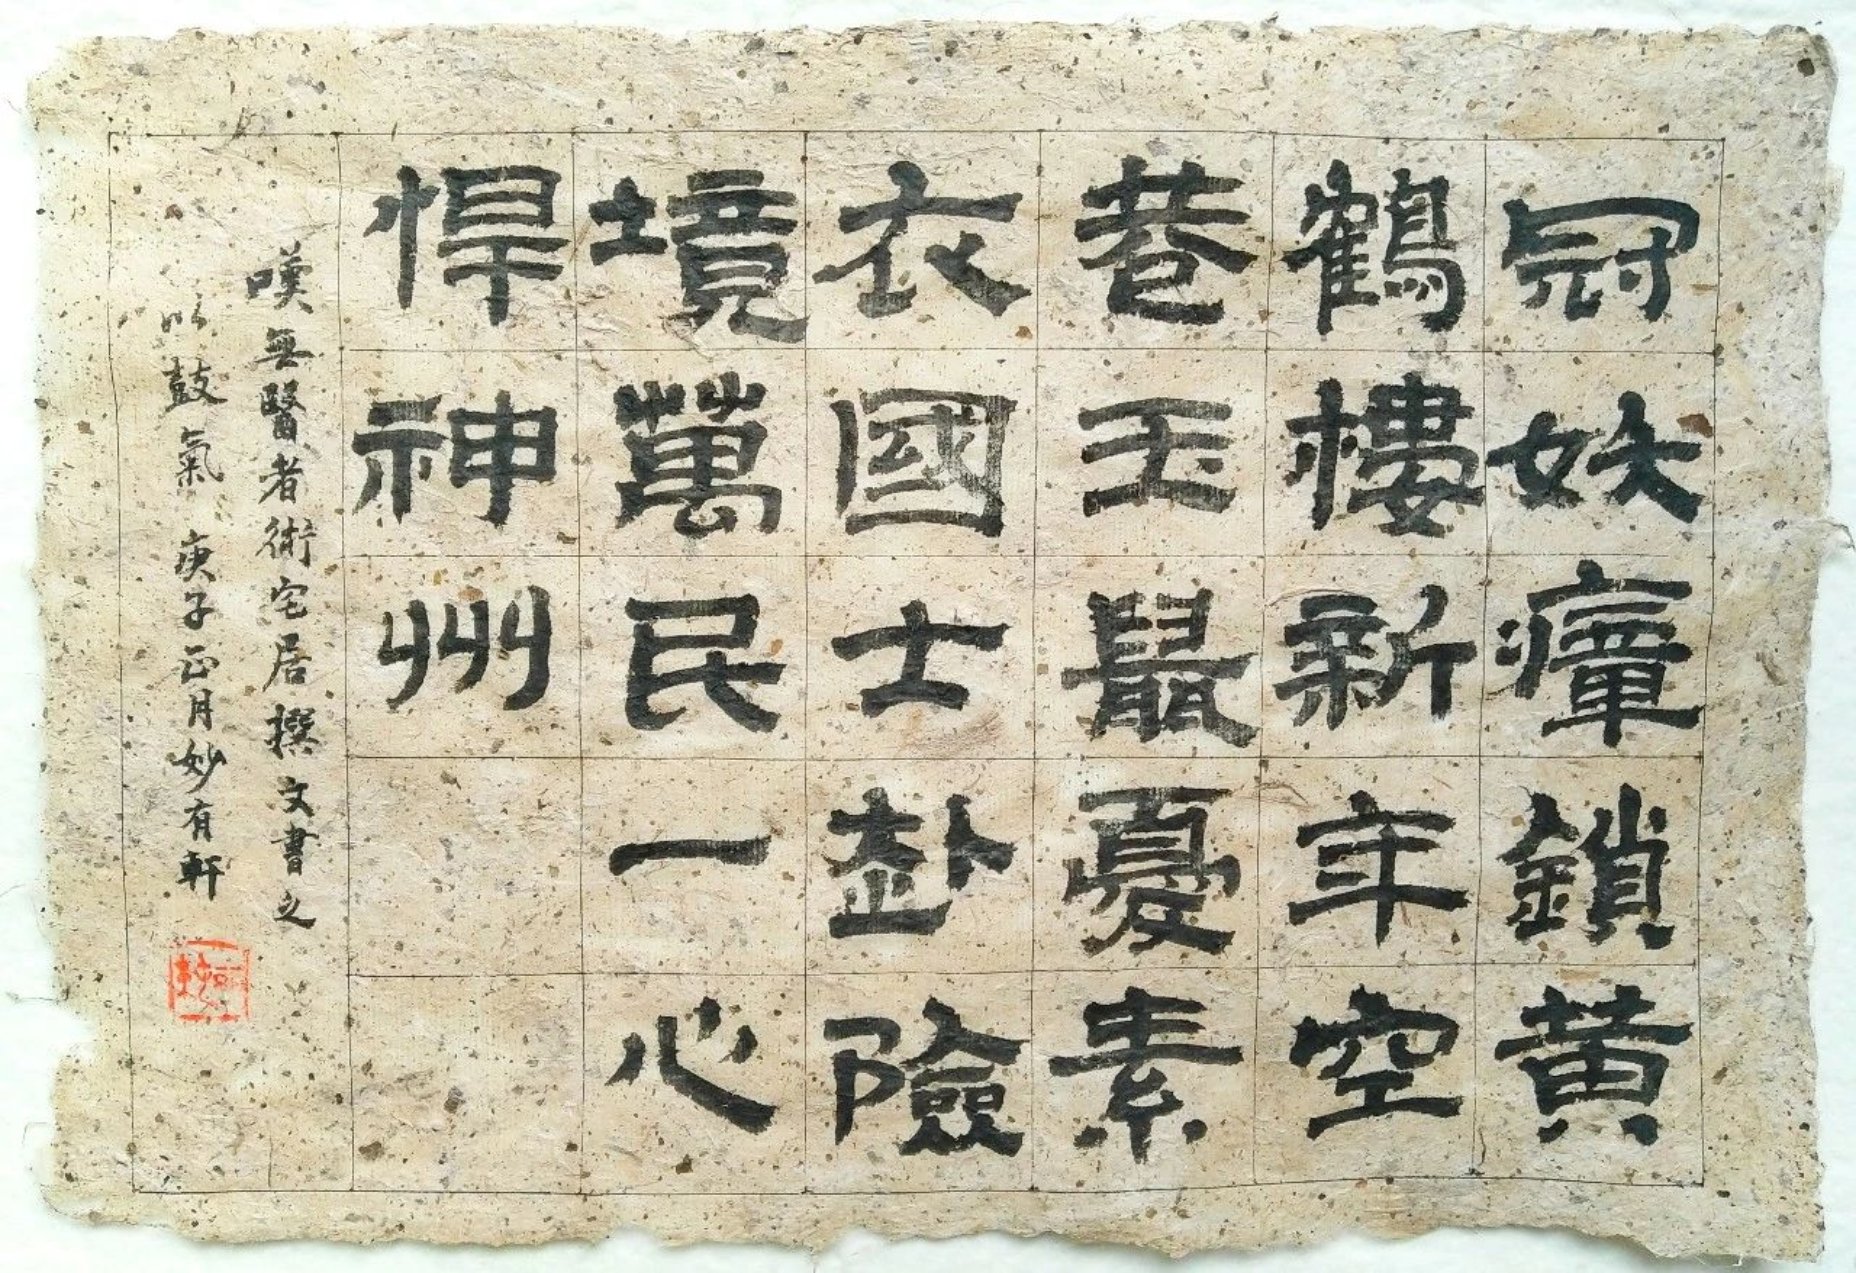 冠妖瘴鎖黃
鶴樓新年空
巷玉鼠憂素
衣國士赴險
境萬民一心
悍神州
嘆無醫者術宅居撰文書之
以鼓氣 庚子正月妙有軒